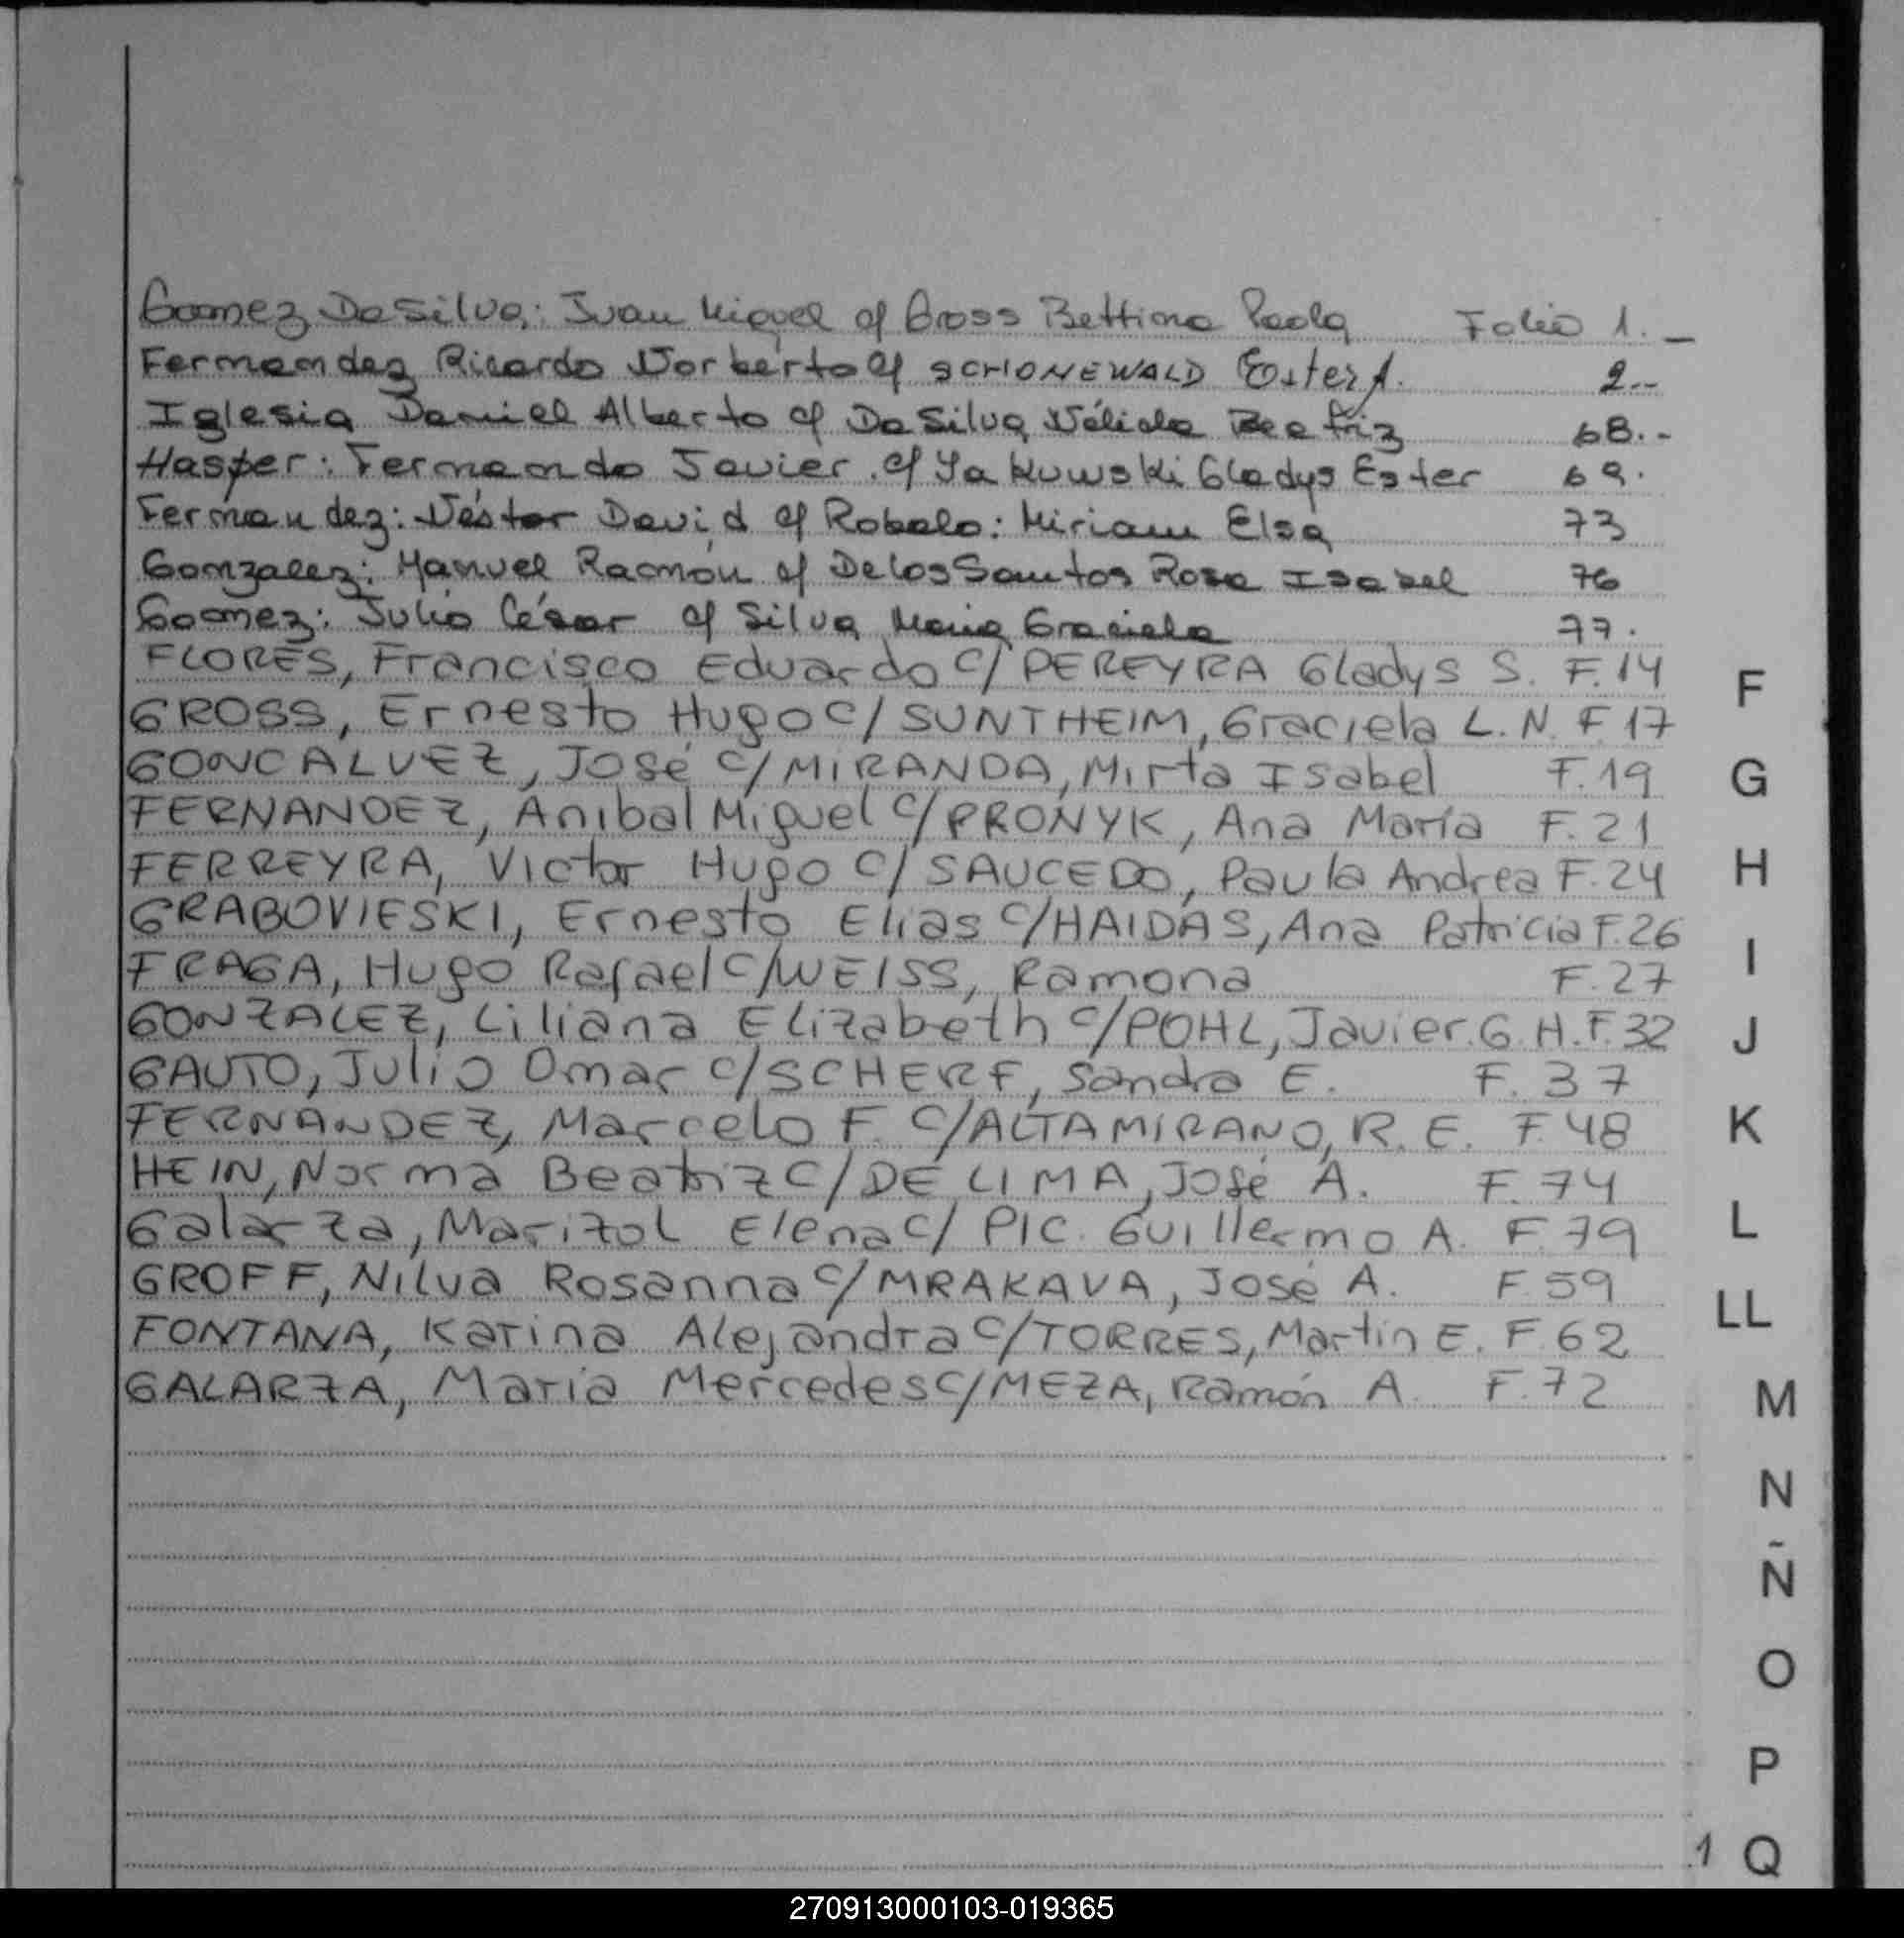 Gomez Da Silva: Juan Miguel c/ Gross Bettina Paola Folio 1._
Fernandez Ricardo Norberto c/ SCHONEWALD Ester A. 2..
Iglesia Daniel Alberto c/ Da Silva Nélida Beatriz 68..
Hasper: Fernando Javier c/ Yakuwski Gladys Ester 69.
Fernandez: Néstor David c/ Robalo: Miriam Elsa 73
Gonzalez: Manuel Ramón c/ De los Santos Rosa Isabel 76
Gomez: Julio César c/ Silva Maria Graciela 77.
FLORES, Francisco Eduardo c/ PEREYRA Gladys S. F.14
GROSS, Ernesto Hugo c/ SUNTHEIM, Graciela L. N. F.17
GONCALVEZ, José c/ MIRANDA, Mirta Isabel F.19
FERNANDEZ, Anibal Miguel c/ PRONYK, Ana María F.21
FERREYRA, Victor Hugo c/ SAUCEDO, Paula Andrea F.24
GRABOVIESKI, Ernesto Elias c/ HAIDAS, Ana Patricia F.26
FRAGA, Hugo Rafael c/ WEISS, Ramona F.27
GONZALEZ, Liliana Elizabeth c/ POHL, Javier G. H. F.32
GAUTO, Julio Omar c/ SCHERF, Sandra E. F.37
FERNANDEZ, Marcelo F. c/ ALTAMIRANO, R. E. F.48
HEIN, Norma Beatriz c/ DE LIMA, José A. F.74
Galarza, Marizol Elena c/ PIC. Guillermo A. F.79
GROFF, Nilva Rosanna c/ MRAKAVA, José A. F.59
FONTANA, Karina Alejandra c/ TORRES, Martin E. F.62
GALARZA, Maria Mercedes c/ MEZA, Ramón A. F.72
F
G
H
I
J
K
L
LL
M
N
Ñ
O
P
1 Q
270913000103-019365